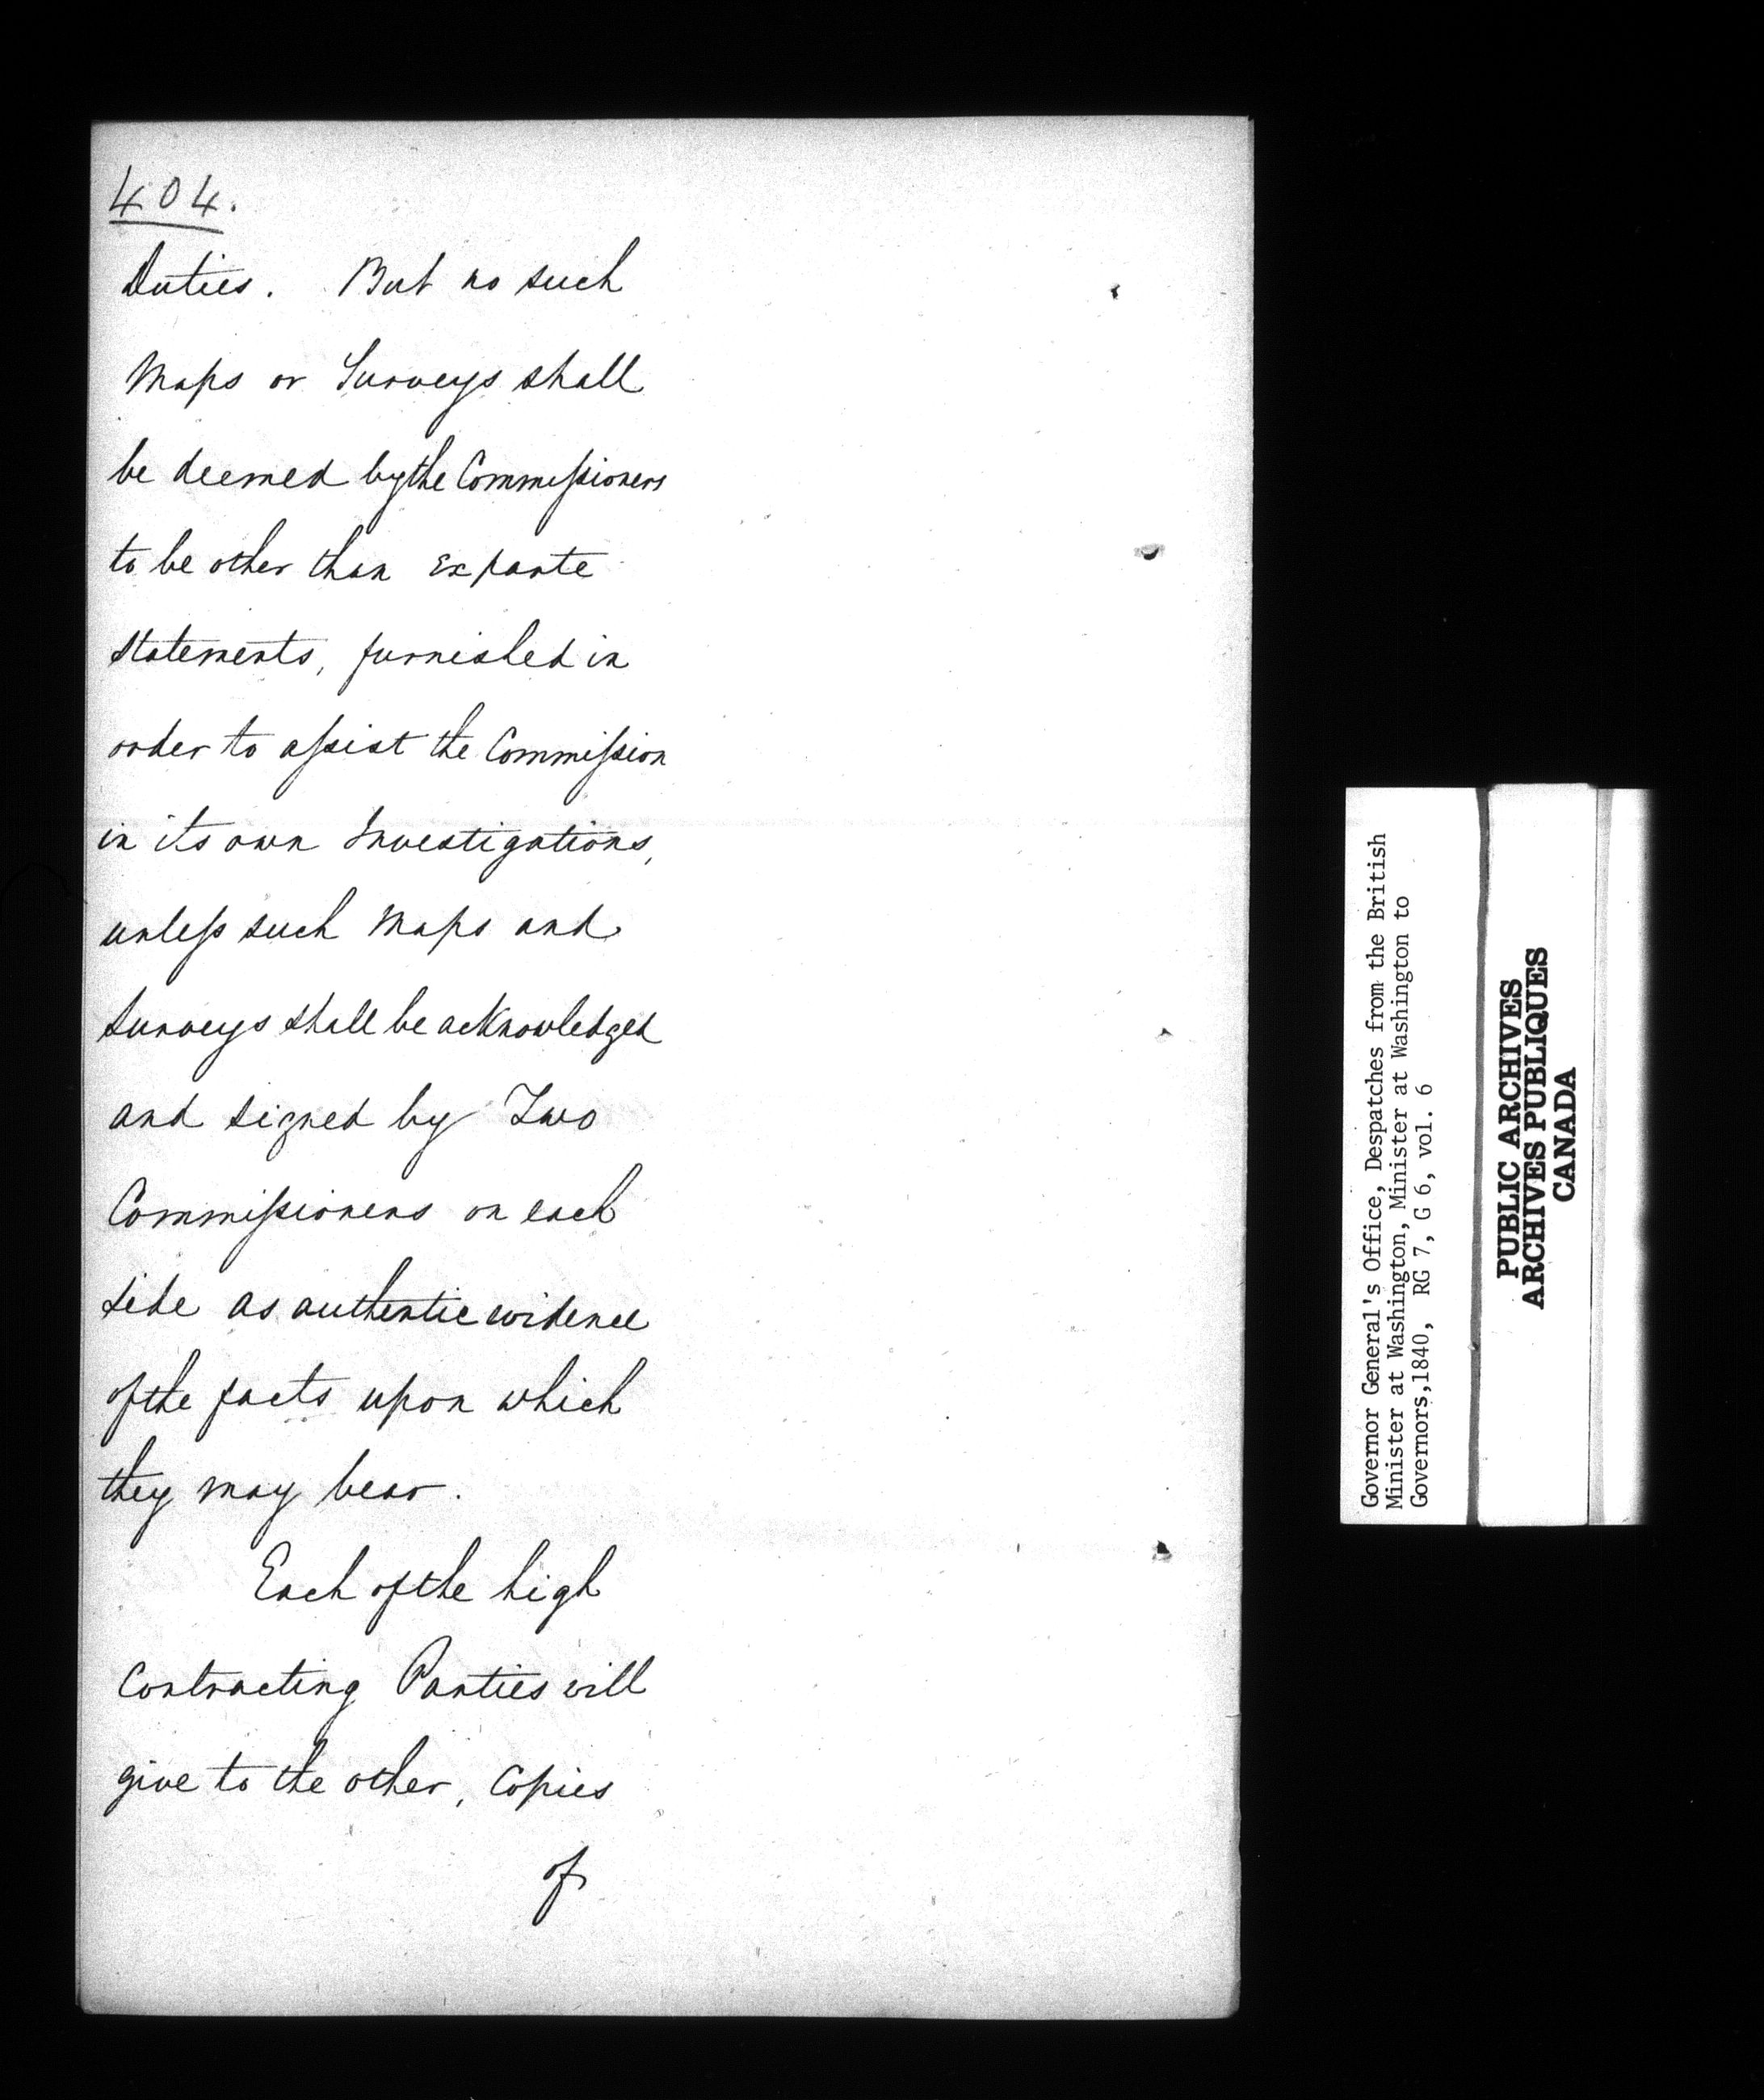 404.
Duties. But no such
Maps or Surveys shall
be deemed by the Commiſsioners
to be other than Ex parte
Statements, furnished in
order to aſsist the Commiſsion
in its own Investigations,
unleſs such Maps and
Surveys shall be acknowledged
and signed by Two
Commiſsioners on each
side as authentic evidence
of the facts upon which
they may bear.
Each of the high
Contracting Parties will
give to the other, Copies
of
Governor General's Office, Despatches from the British
Minister at Washington, Minister at Washington to
Governors,1840, RG 7, G 6, vol. 6
PUBLIC ARCHIVES
ARCHIVES PUBLIQUES
CANADA